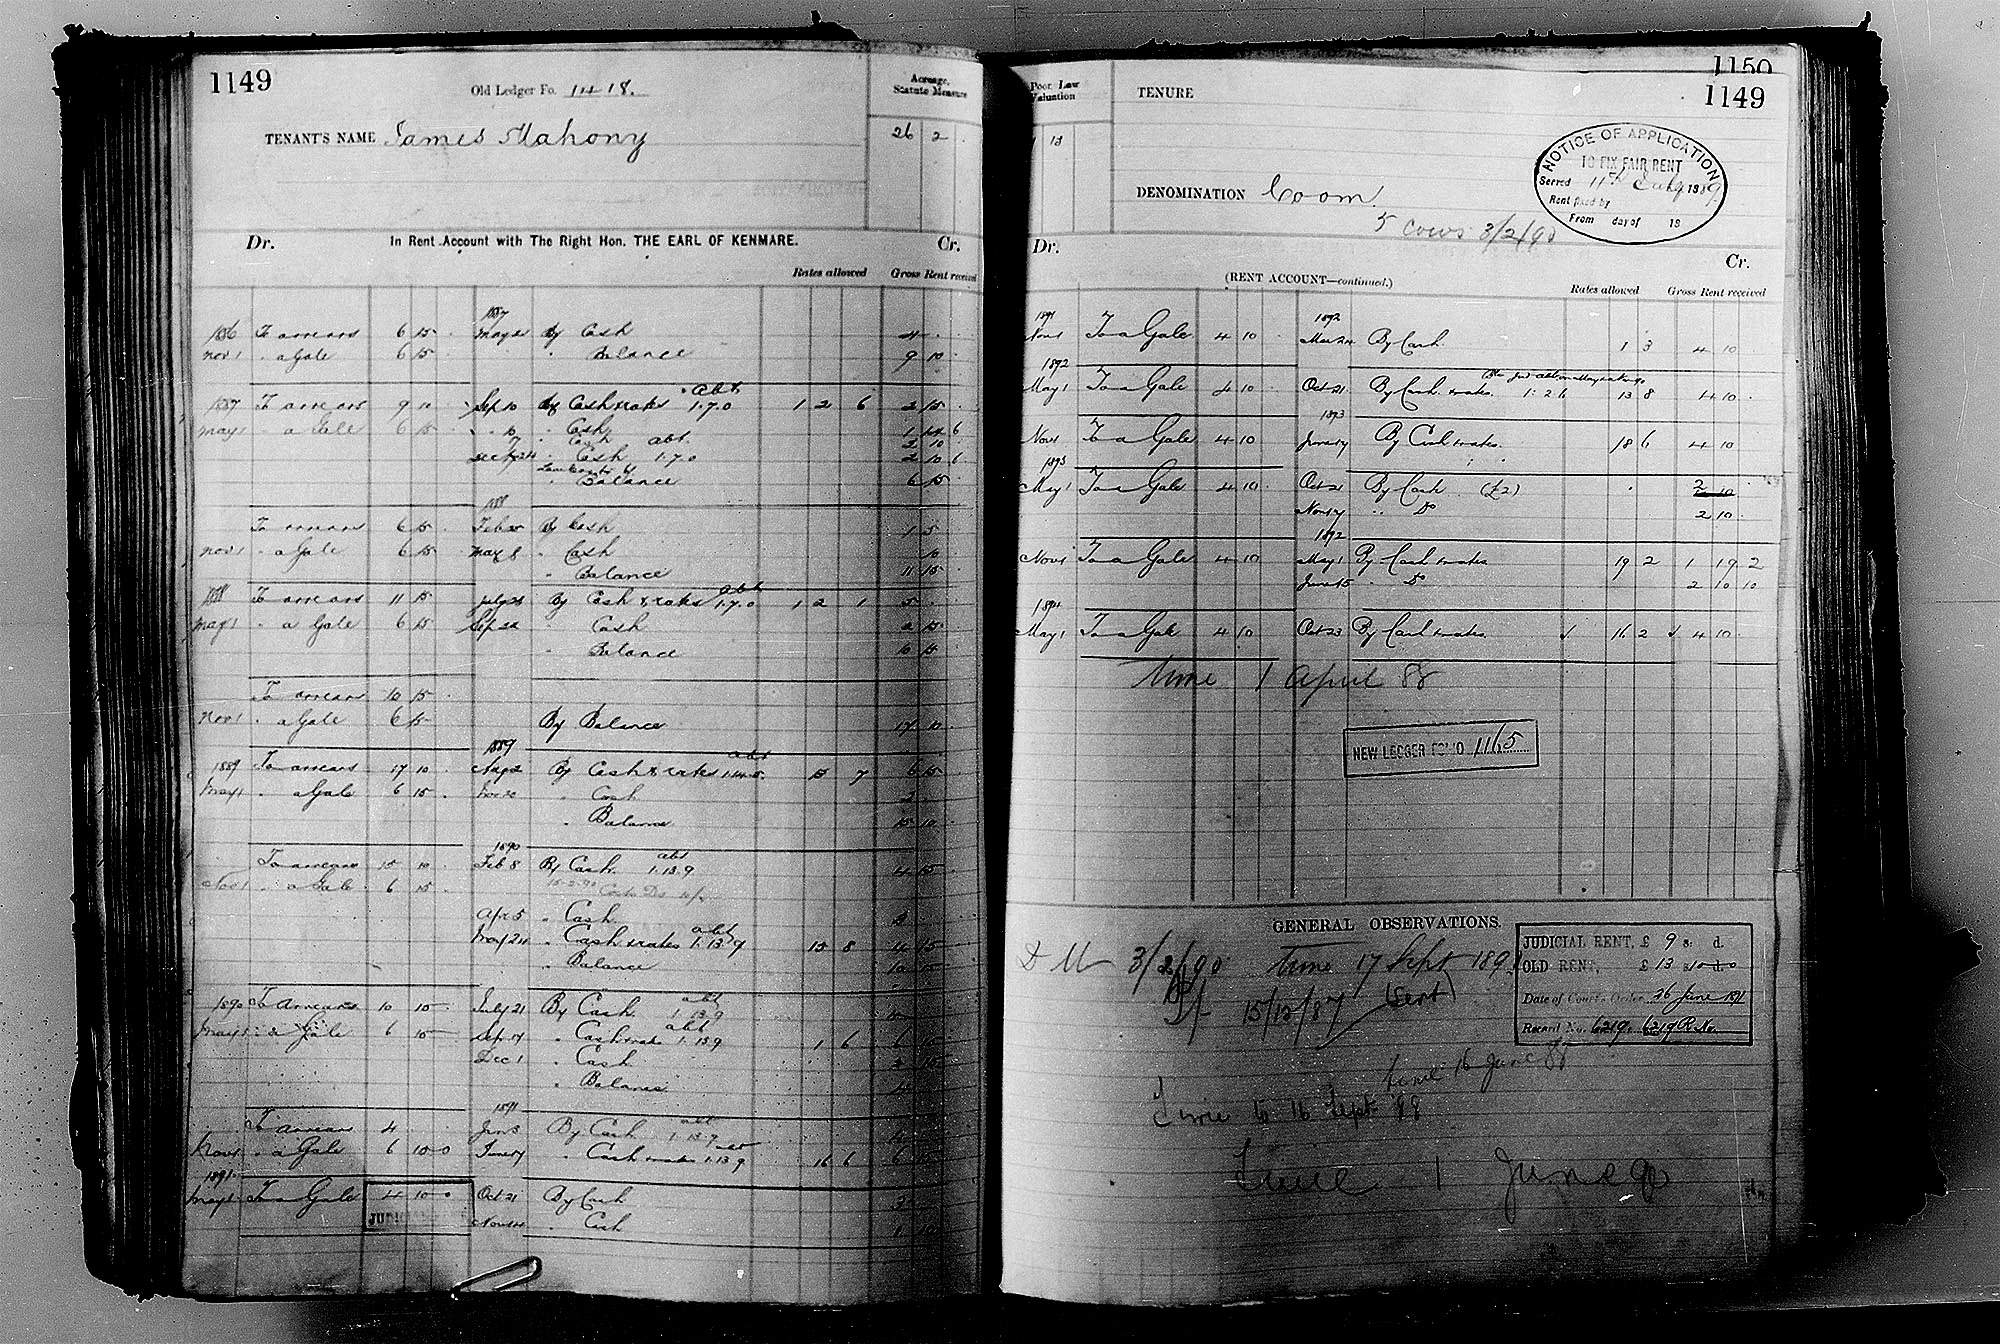 1149
Old Ledger Fo. 1418.
Acreage, Statute Measure
TENANT'S NAME James Mahony
26 2
Dr. In Rent Account with The Right Hon. THE EARL OF KENMARE. Cr.
Rates allowed Gross Rent received
1887
1886 To arrears 6 15 . May 21 By Cash 4 . .
Nov 1 " a Gale 6 15 . " Balance 9 10 .
1887 To arrears 9 10 . Sep 10 By Cash & rates abt 1.7.0 1 2 6 2 15 .
May 1 " a Gale 6 15 . " Cash 1 14 6
" Cash abt. 2 10
Dec " Cash 1.7.0 2 10 6
" Balance 6 15
1888
To arrears 6 15 . Feb By Cash 1 5
Nov 1 " a Gale 6 15 May 8 " Cash 10
" Balance 11 15
1888 To arrears 11 15 July By Cash & rates abt 1.7.0 1 2 1 5
May 1 " a Gale 6 15 Sep 22 " Cash 2 15
" Balance 10 15
To arrears 10 15 .
Nov 1 " a Gale 6 15 By Balance 17 10
1889
1889 To arrears 17 10 Aug 2 By Cash & rates abt 15 7 6 15
May 1 " a Gale 6 15 . Nov 20 " Cash 2
" Balance 15 10
1890
To arrears 15 10 Feb 8 By Cash abt 1.13.9 4 15
Nov 1 " a Gale 6 15
Apr 5 " Cash 5
May 24 " Cash & rates abt 1.13.9 15 8 4 15
" Balance 10 15
1890 To Arrears 10 15 July 21 By Cash abt 1.13.9
May 1 " a Gale 6 15 Sep 17 " Cash & rates abt 1.13.9 1 6 6
Dec 1 " Cash
" Balance 4
1891
To arrears 4 Jan 3 By Cash abt 1.13.9
Nov 1 " a Gale 6 10 0 June 17 " Cash & rates abt 1.13.9 16 6 6
1891
May 1 To a Gale 4 10 0 Oct 21 By Cash 3
JUDICIAL Nov 14 " Cash 1 10
1150
1149
Poor Law Valuation
TENURE
13
NOTICE OF APPLICATION
TO FIX FAIR RENT
Served 11th July 1889.
Rent fixed by
From day of 18
DENOMINATION Coom.
5 Cows 3/2/90
Dr. Cr.
(RENT ACCOUNT—continued.)
Rates allowed Gross Rent received
1891 1892
Nov 1 To a Gale 4 10 . Mar 24 By Cash 1 3 4 10
1892
May 1 To a Gale 4 10 . Oct 21 By Cash rates. 1:2 6 13 8 4 10 .
1893
Nov 1 To a Gale 4 10 June 17 By Cash & rates. 18 6 4 10
1893
May 1 To a Gale 4 10 . Oct 21 By Cash (£2) 2 10
Nov 17 " Do 2 10 .
1892
Nov 1 To a Gale 4 10 May 1 By Cash & rates 19 2 1 19 2
June 15 " Do 2 10 10
1894
May 1 To a Gale 4 10 Oct 23 By Cash & rates. 16 2 4 10 .
time 1 April 88
NEW LEDGER FOLIO 1165
GENERAL OBSERVATIONS.
3/2/90 time 17 Sept 189
15/12/87 (Sent)
JUDICIAL RENT, £ 9 s. d.
OLD RENT, £ 13 s. 10 d. 0
Date of Court's Order 26 June 1891
Record No. 6219. 6219 R No.
time 16 June 88
Time to 16 Sept 88
Time 1 June 90